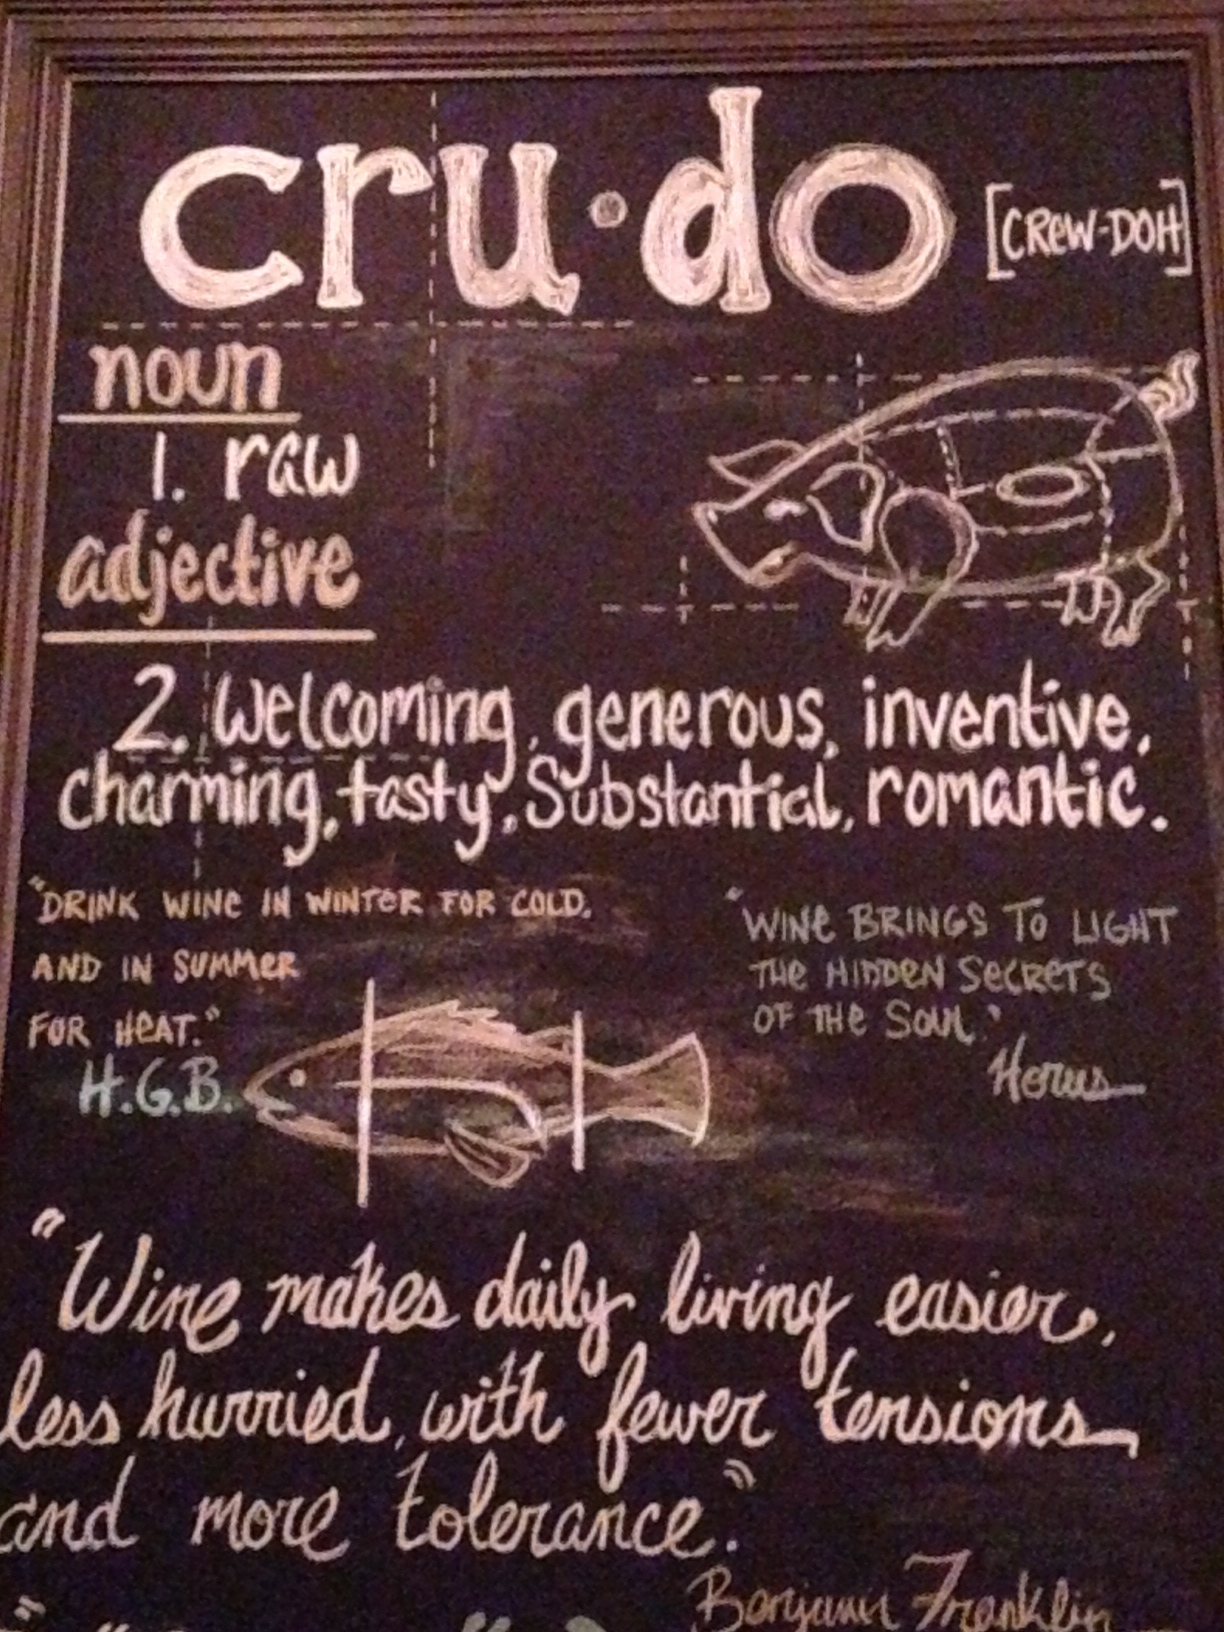 cru·do [CREW-DOH]
noun
1. raw
adjective
2. Welcoming, generous, inventive,
charming, tasty, Substantial, romantic.
"DRINK WINE IN WINTER FOR COLD.
AND IN SUMMER
FOR HEAT."
H.G.B.
"WINE BRINGS TO LIGHT
THE HIDDEN SECRETS
OF THE SOUL."
"Wine makes daily living easier,
less hurried, with fewer tensions
and more tolerance."
Benjamin Franklin